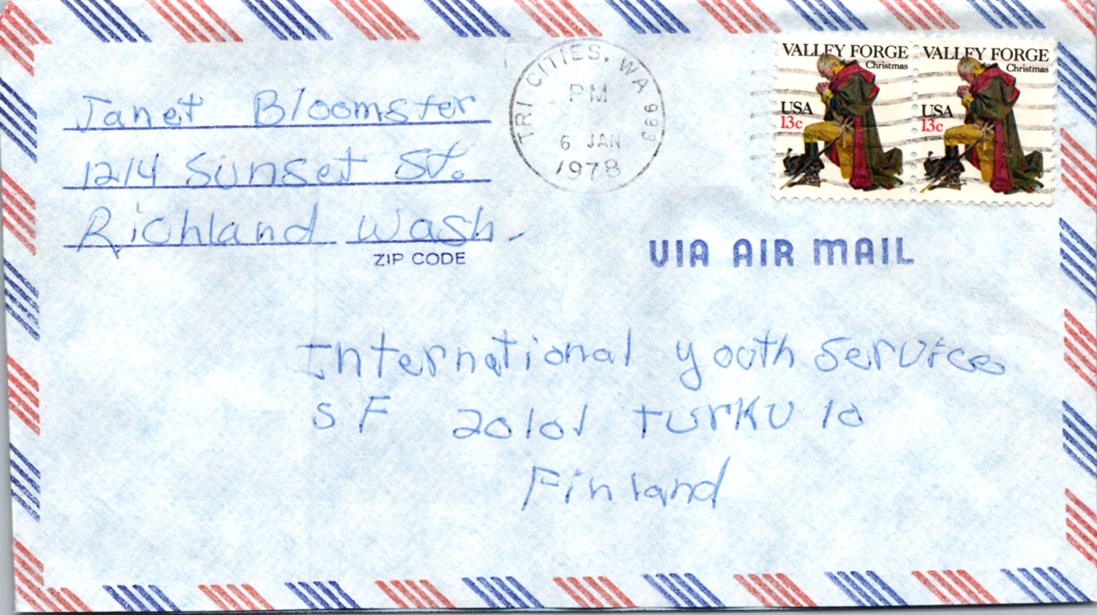 Janet Bloomster
1214 Sunset St.
Richland Wash.
ZIP CODE
TRI CITIES, WA 993
PM
6 JAN
1978
VALLEY FORGE
Christmas
USA
13c
VALLEY FORGE
Christmas
USA
13c
VIA AIR MAIL
International Youth Service
SF 20101 TURKU 10
Finland